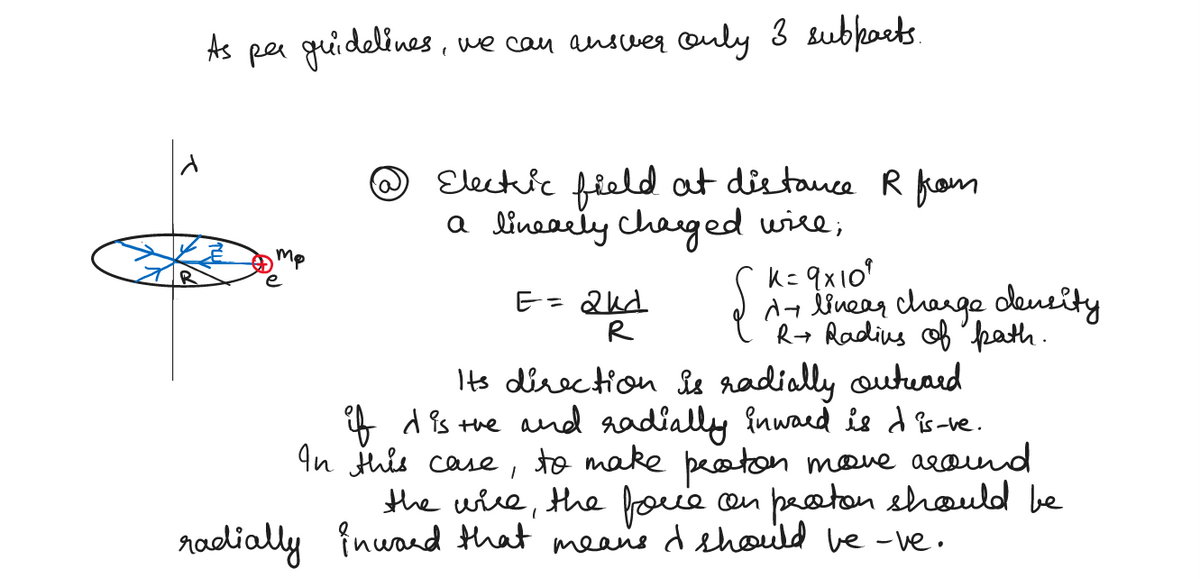 As per guidelines, we can answer only 3 subparts.
λ
E
R
mp
e
(a) Electric field at distance R from
a linearly charged wire;
E = 2kλ/R
{ k = 9×10⁹
λ→ linear charge density
R→ Radius of path.
Its direction is radially outward
if λ is +ve and radially inward is λ is -ve.
In this case, to make proton move around
the wire, the force on proton should be
radially inward that means λ should be -ve.